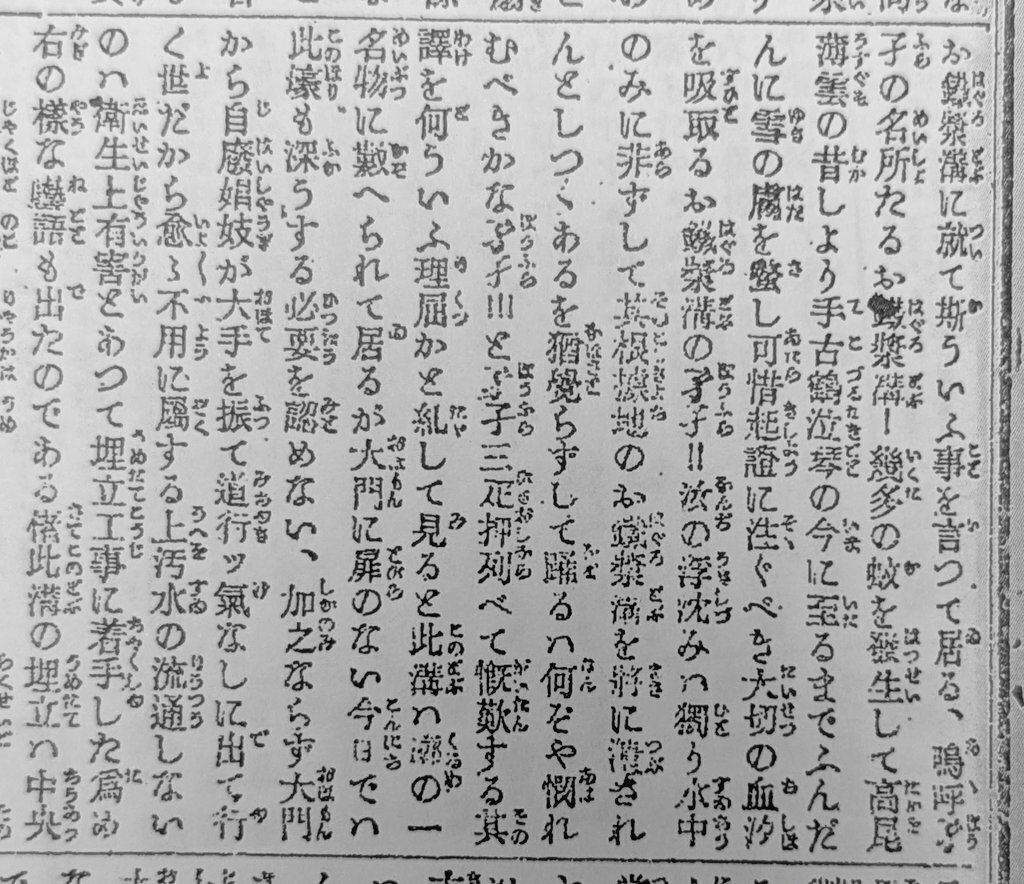 お鐵漿溝に就て斯ういふ事を言つて居る、嗚呼
孑の名所たるお鐵漿溝ー幾多の蚊を發生して高尾
薄雲の昔しより手古鶴泣琴の今に至るまでふんだ
んに雪の膚を螫し可惜起證に注ぐべき大切の血汐
を吸取るお鐵漿溝の孑孑!!汝の浮沈みハ獨り水中
のみに非ずして其根據地のお鐵漿溝を將に潰され
んとしつゝあるを猶覺らずして踊るハ何ぞや憫れ
むべきかな孑孑!!!と孑孑三疋押列べて慨歎する其
譯を何ういふ理屈かと糺して見ると此溝ハ廓の一
名物に數へられて居るが大門に扉のない今日でハ
此壕も深うする必要を認めない、加之ならず大門
から自廢娼妓が大手を振て道行ッ氣なしに出て行
く世だから愈々不用に屬する上汚水の流通しない
のハ衛生上有害とあつて埋立工事に着手した爲め
右の樣な囈語も出たのである偖此溝の埋立ハ中央